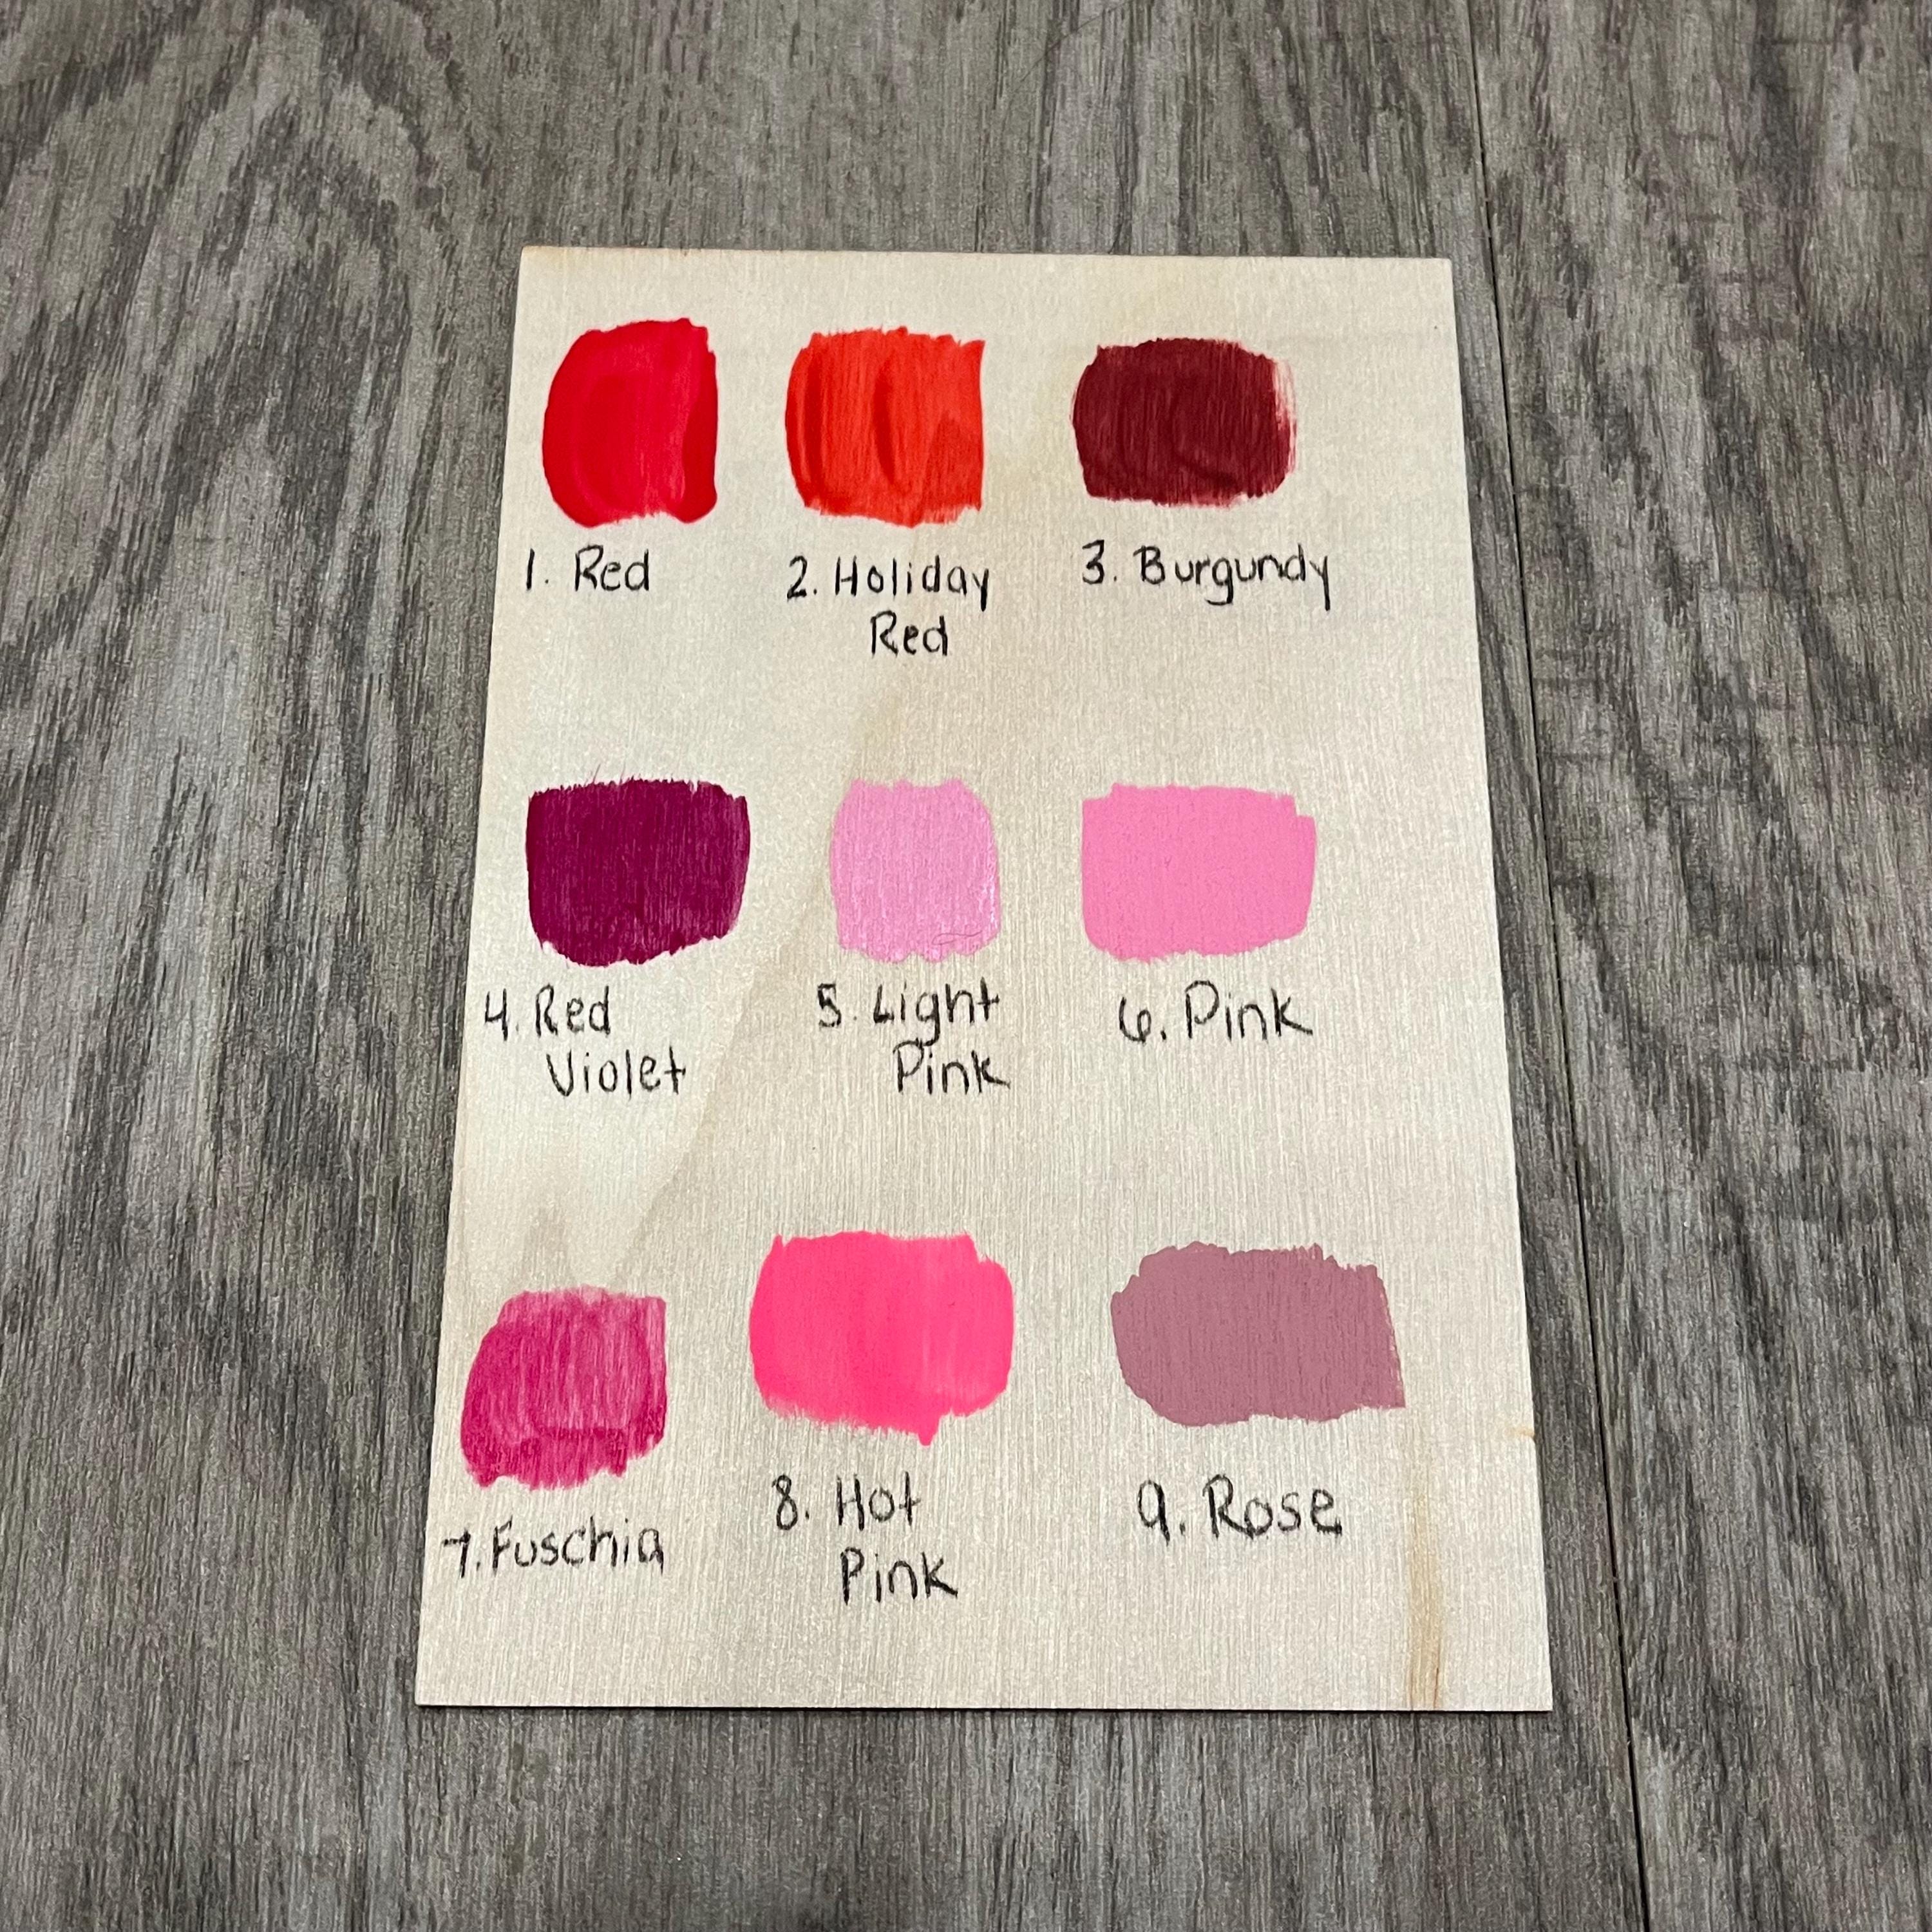 1. Red
2. Holiday
Red
3. Burgundy
4. Red
Violet
5. Light
Pink
6. Pink
7. Fuschia
8. Hot
Pink
9. Rose